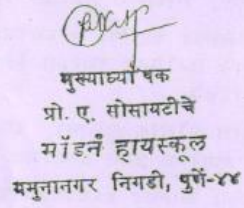 मुख्याध्यापक
प्रो. ए. सोसायटीचे
मॉडर्न हायस्कूल
यमुनानगर निगडी, पुणें-४४